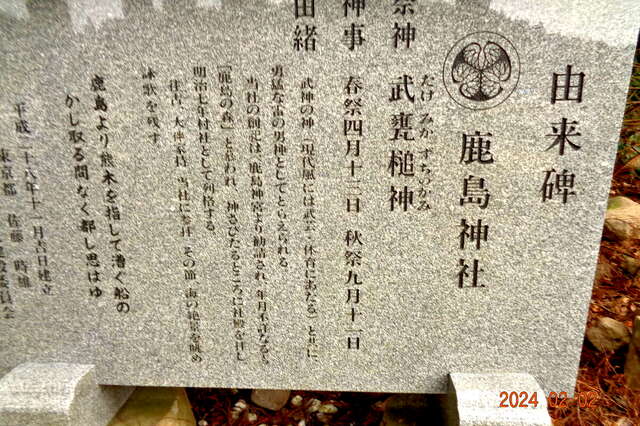 由来碑
鹿島神社
祭神 武甕槌神
たけ みか づちのかみ
神事 春祭四月十二日 秋祭九月十二日
由緒
武神の神(現代風には武芸・体育にあたる)と共に、
勇猛な雷の男神としてとらえられる。
当社の創祀は、鹿島神宮より勧請され、年月不詳なるも
「鹿島の森」と慕われ、神さびたるところに社殿を有し
明治七年村社として列格する。
往古、大伴家持、当社に参拝、その節、海の絶景を眺め
詠歌を残す。
鹿島より熊木を指して漕ぐ船の
かじ取る間なく都し思ほゆ
平成二十八年十一月吉日建立
東京都 佐藤 時雄
建設委員会
2024 02 02